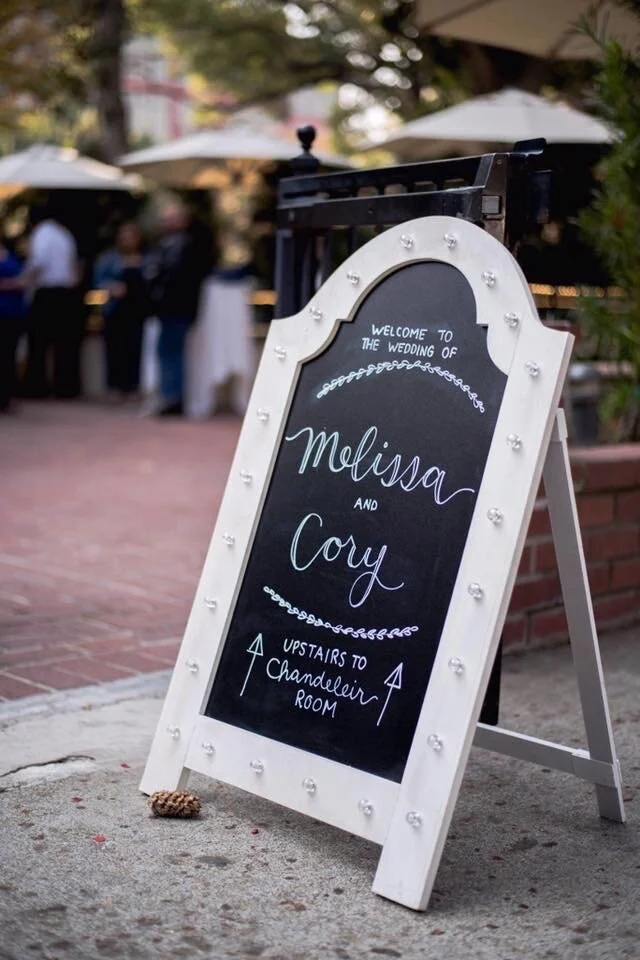 WELCOME TO
THE WEDDING OF
Melissa
AND
Cory
UPSTAIRS TO
Chandeleir
ROOM